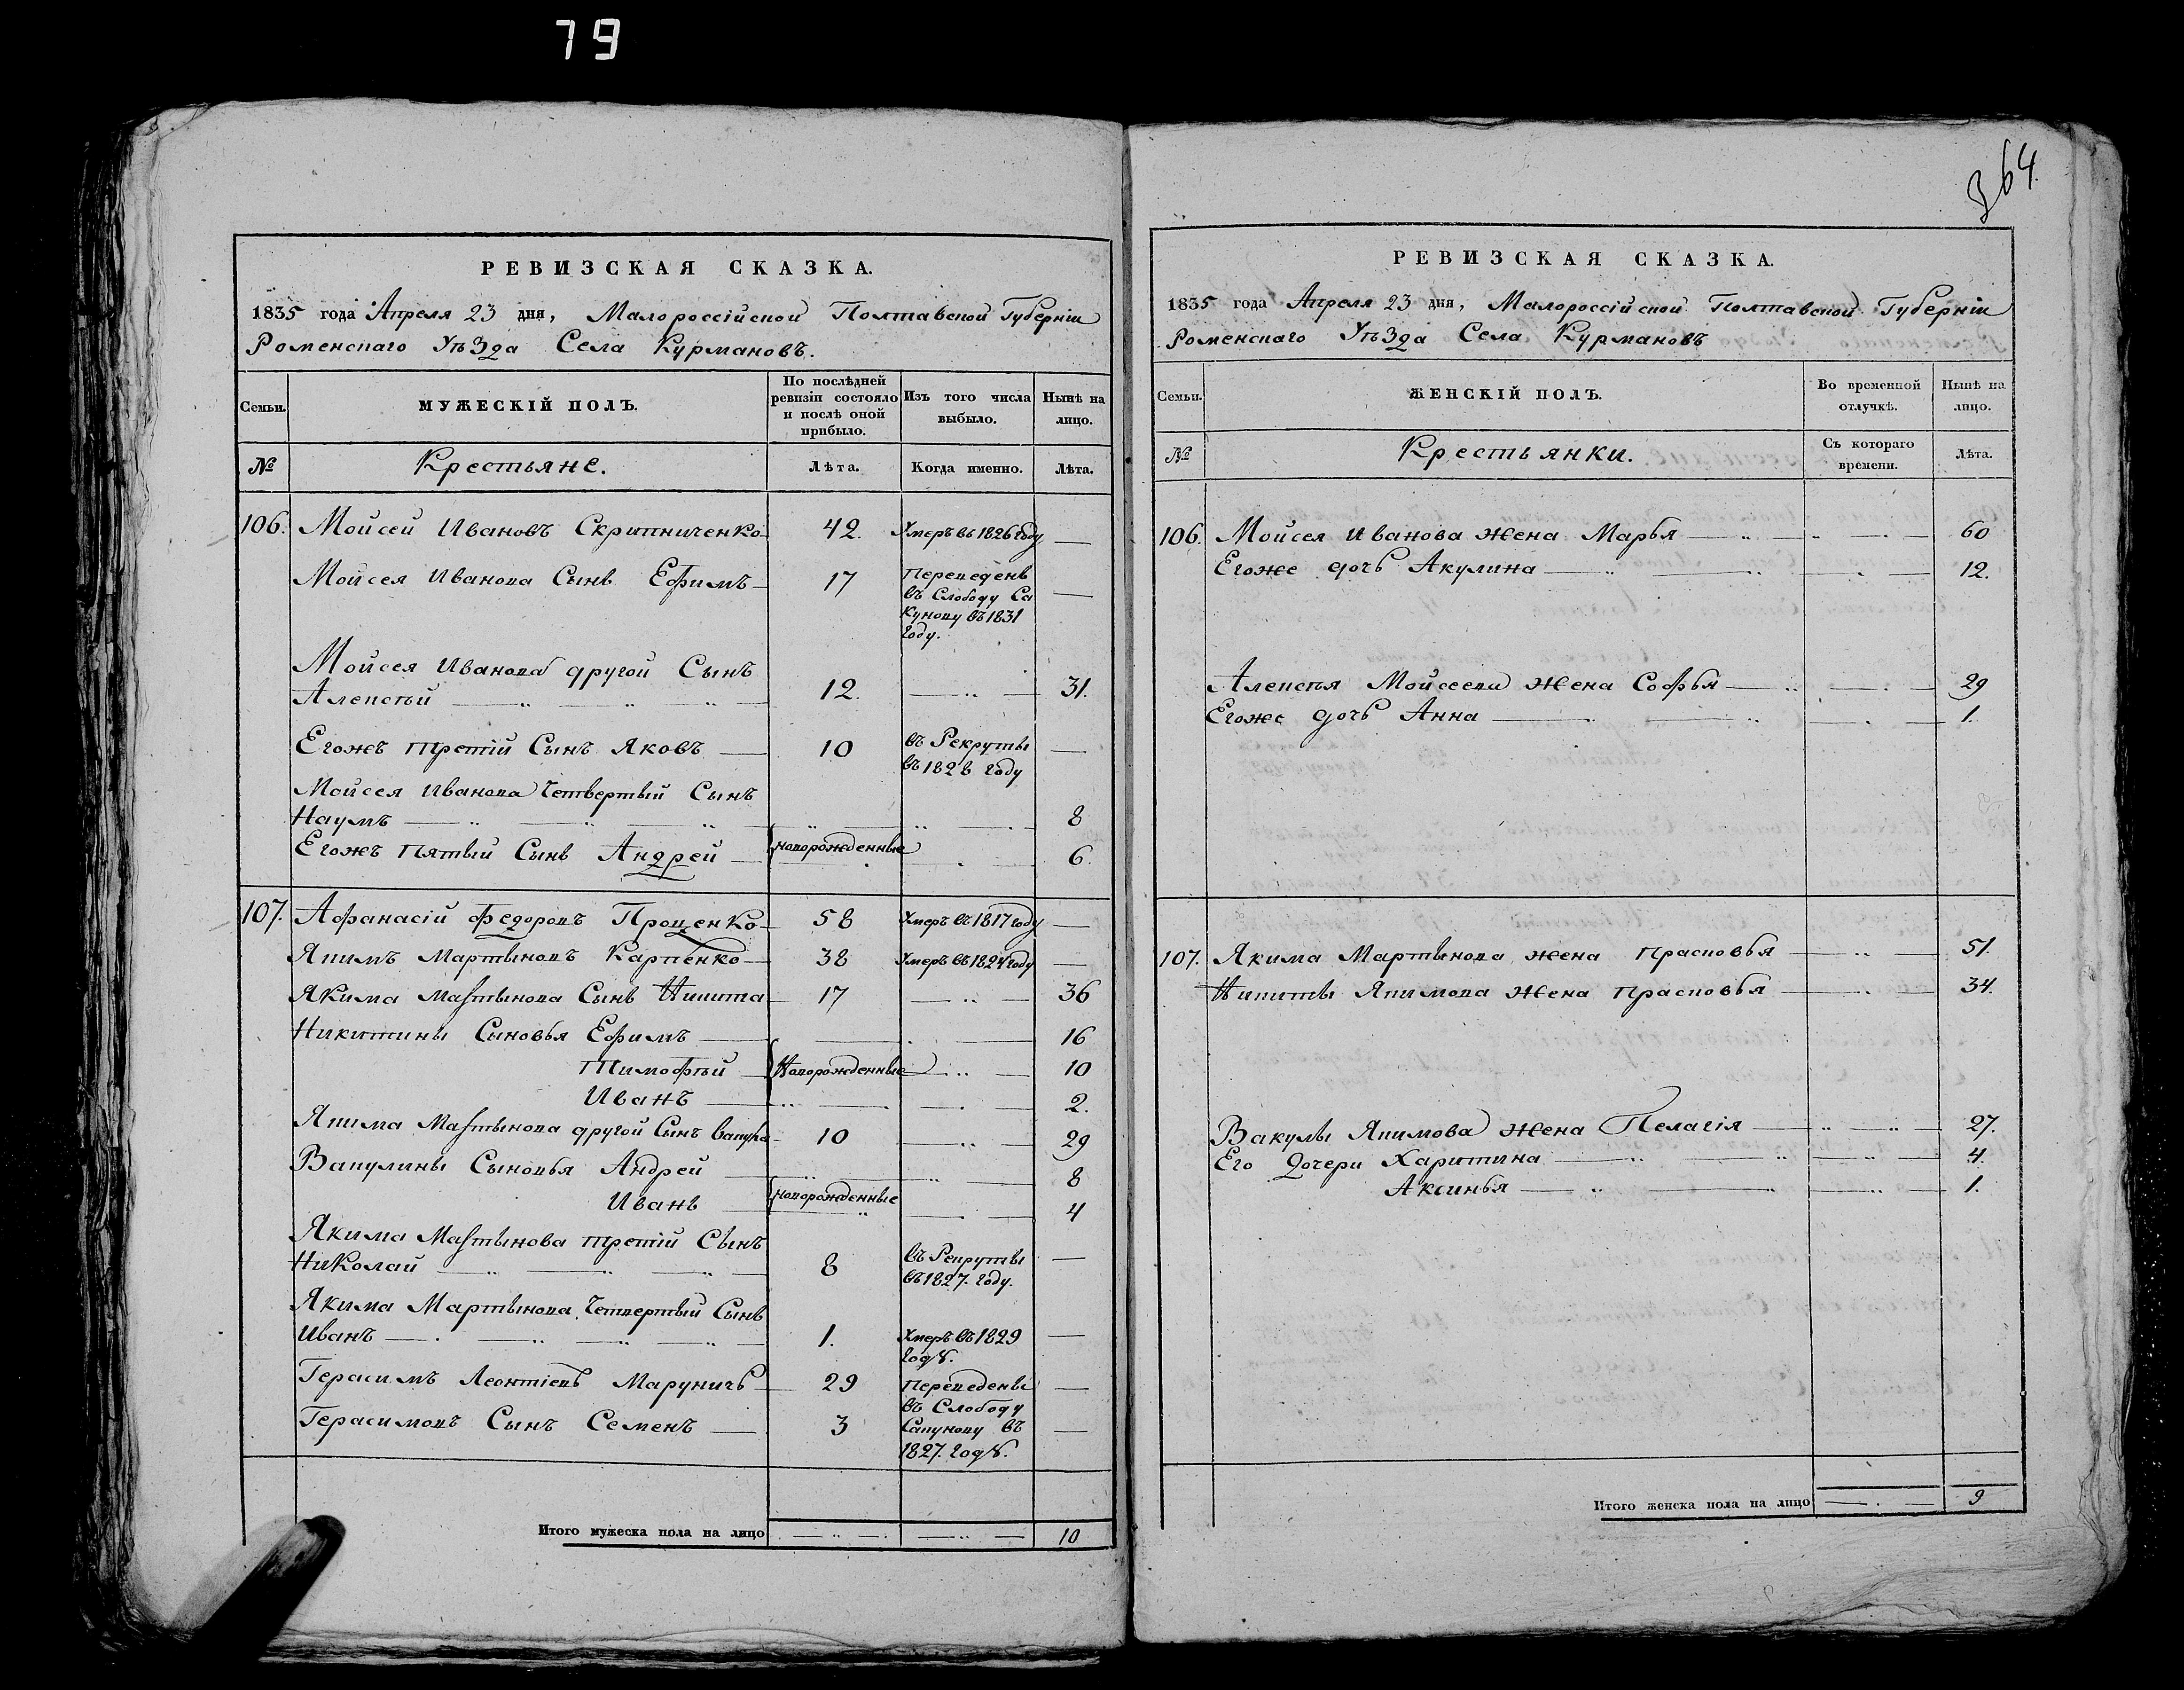 79
РЕВИЗСКАЯ СКАЗКА.
1835 года Апреля 23 дня, Малороссійской Полтавской Губерніи
Роменскаго Уѣзда Села Курмановъ.
Семьи. МУЖЕСКІЙ ПОЛЪ. По послѣдней ревизіи состояло и послѣ оной прибыло. Изъ того числа выбыло. Нынѣ на лицо.
№ Крестьяне. Лѣта. Когда именно. Лѣта.
106. Мойсей Ивановъ Скрипниченко 42. Умеръ въ 1826 году —
Мойсея Иванова Сынъ Ефимъ 17 Переведенъ
въ Слободу Са
кунову въ 1831
году. —
Мойсея Иванова другой Сынъ
Алексѣй 12. — 31.
Егожъ третій Сынъ Яковъ 10 въ Рекруты
въ 1828 году —
Мойсея Иванова Четвертый Сынъ
Наумъ 8
Егожъ пятый Сынъ Андрей новорожденные 6.
107. Афанасій Федоровъ Проценко 58 Умеръ въ 1817 году —
Якимъ Мартыновъ Карпенко 38 Умеръ въ 1824 году —
Якима Мартынова Сынъ Никита 17 — 36
Никитины Сыновья Ефимъ 16
Тимофѣй Новорожденные 10
Иванъ 2.
Якима Мартынова другой Сынъ Вакула 10 — 29
Вакулины Сыновья Андрей 8
новорожденные
Иванъ 4
Якима Мартынова третій Сынъ
Николай 8 въ Рекруты
въ 1827. году. —
Якима Мартынова Четвертый Сынъ
Иванъ 1. Умеръ въ 1829
году. —
Герасимъ Леонтіевъ Маруничъ 29 Переведены —
въ Слободу
Герасимовъ Сынъ Семенъ 3 Сакунову въ —
1827. году.
Итого мужеска пола на лицо 10
364.
РЕВИЗСКАЯ СКАЗКА.
1835 года Апреля 23 дня, Малороссійской Полтавской Губерніи
Роменскаго Уѣзда Села Курмановъ
Семьи. ЖЕНСКІЙ ПОЛЪ. Во временной отлучкѣ. Нынѣ на лицо.
№ Крестьянки. Съ котораго времени. Лѣта.
106. Мойсея Иванова жена Марья 60
Егоже дочь Акулина 12.
Алексѣя Мойсеева жена Софья 29
Егоже дочь Анна 1.
107. Якима Мартынова жена Прасковья 51.
Никиты Якимова жена Прасковья 34.
Вакулы Якимова жена Пелагія 27.
Его дочери Харитина 4.
Аксинья 1.
Итого женска пола на лицо 9